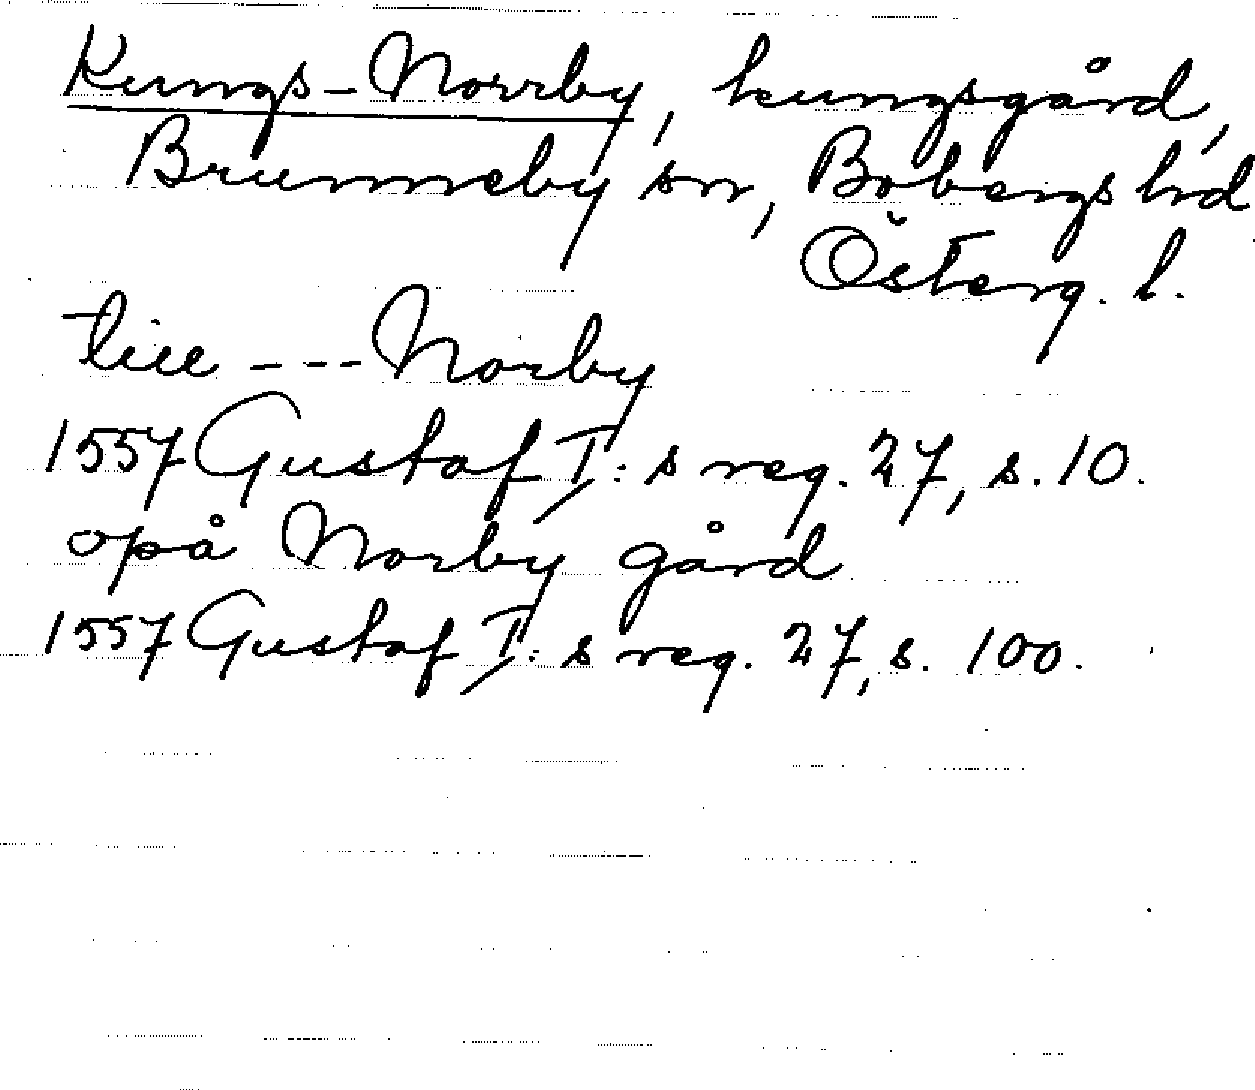 Kungs-Norrby, kungsgård,
Brunneby sn, Bobergs hd
Österg. l.
till --- Norby
1557 Gustaf I:s reg. 27, s. 10.
opå Norby gård
1557 Gustaf I:s reg. 27, s. 100.